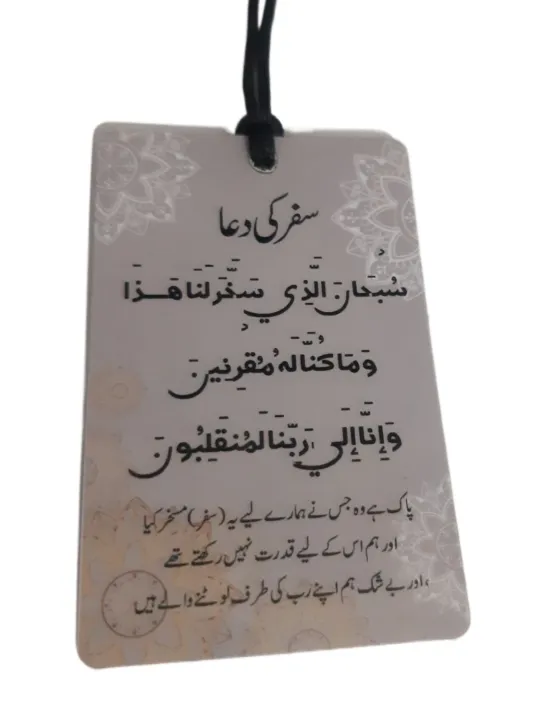 سفر کی دعا
سُبْحَانَ الَّذِي سَخَّرَ لَنَا هَذَا
وَمَا كُنَّا لَهُ مُقْرِنِينَ
وَإِنَّا إِلَى رَبِّنَا لَمُنْقَلِبُونَ
پاک ہے وہ جس نے ہمارے لیے یہ (سفر) مسخر کیا
اور ہم اس کے لیے قدرت نہیں رکھتے تھے
،اور بے شک ہم اپنے رب کی طرف لوٹنے والے ہیں